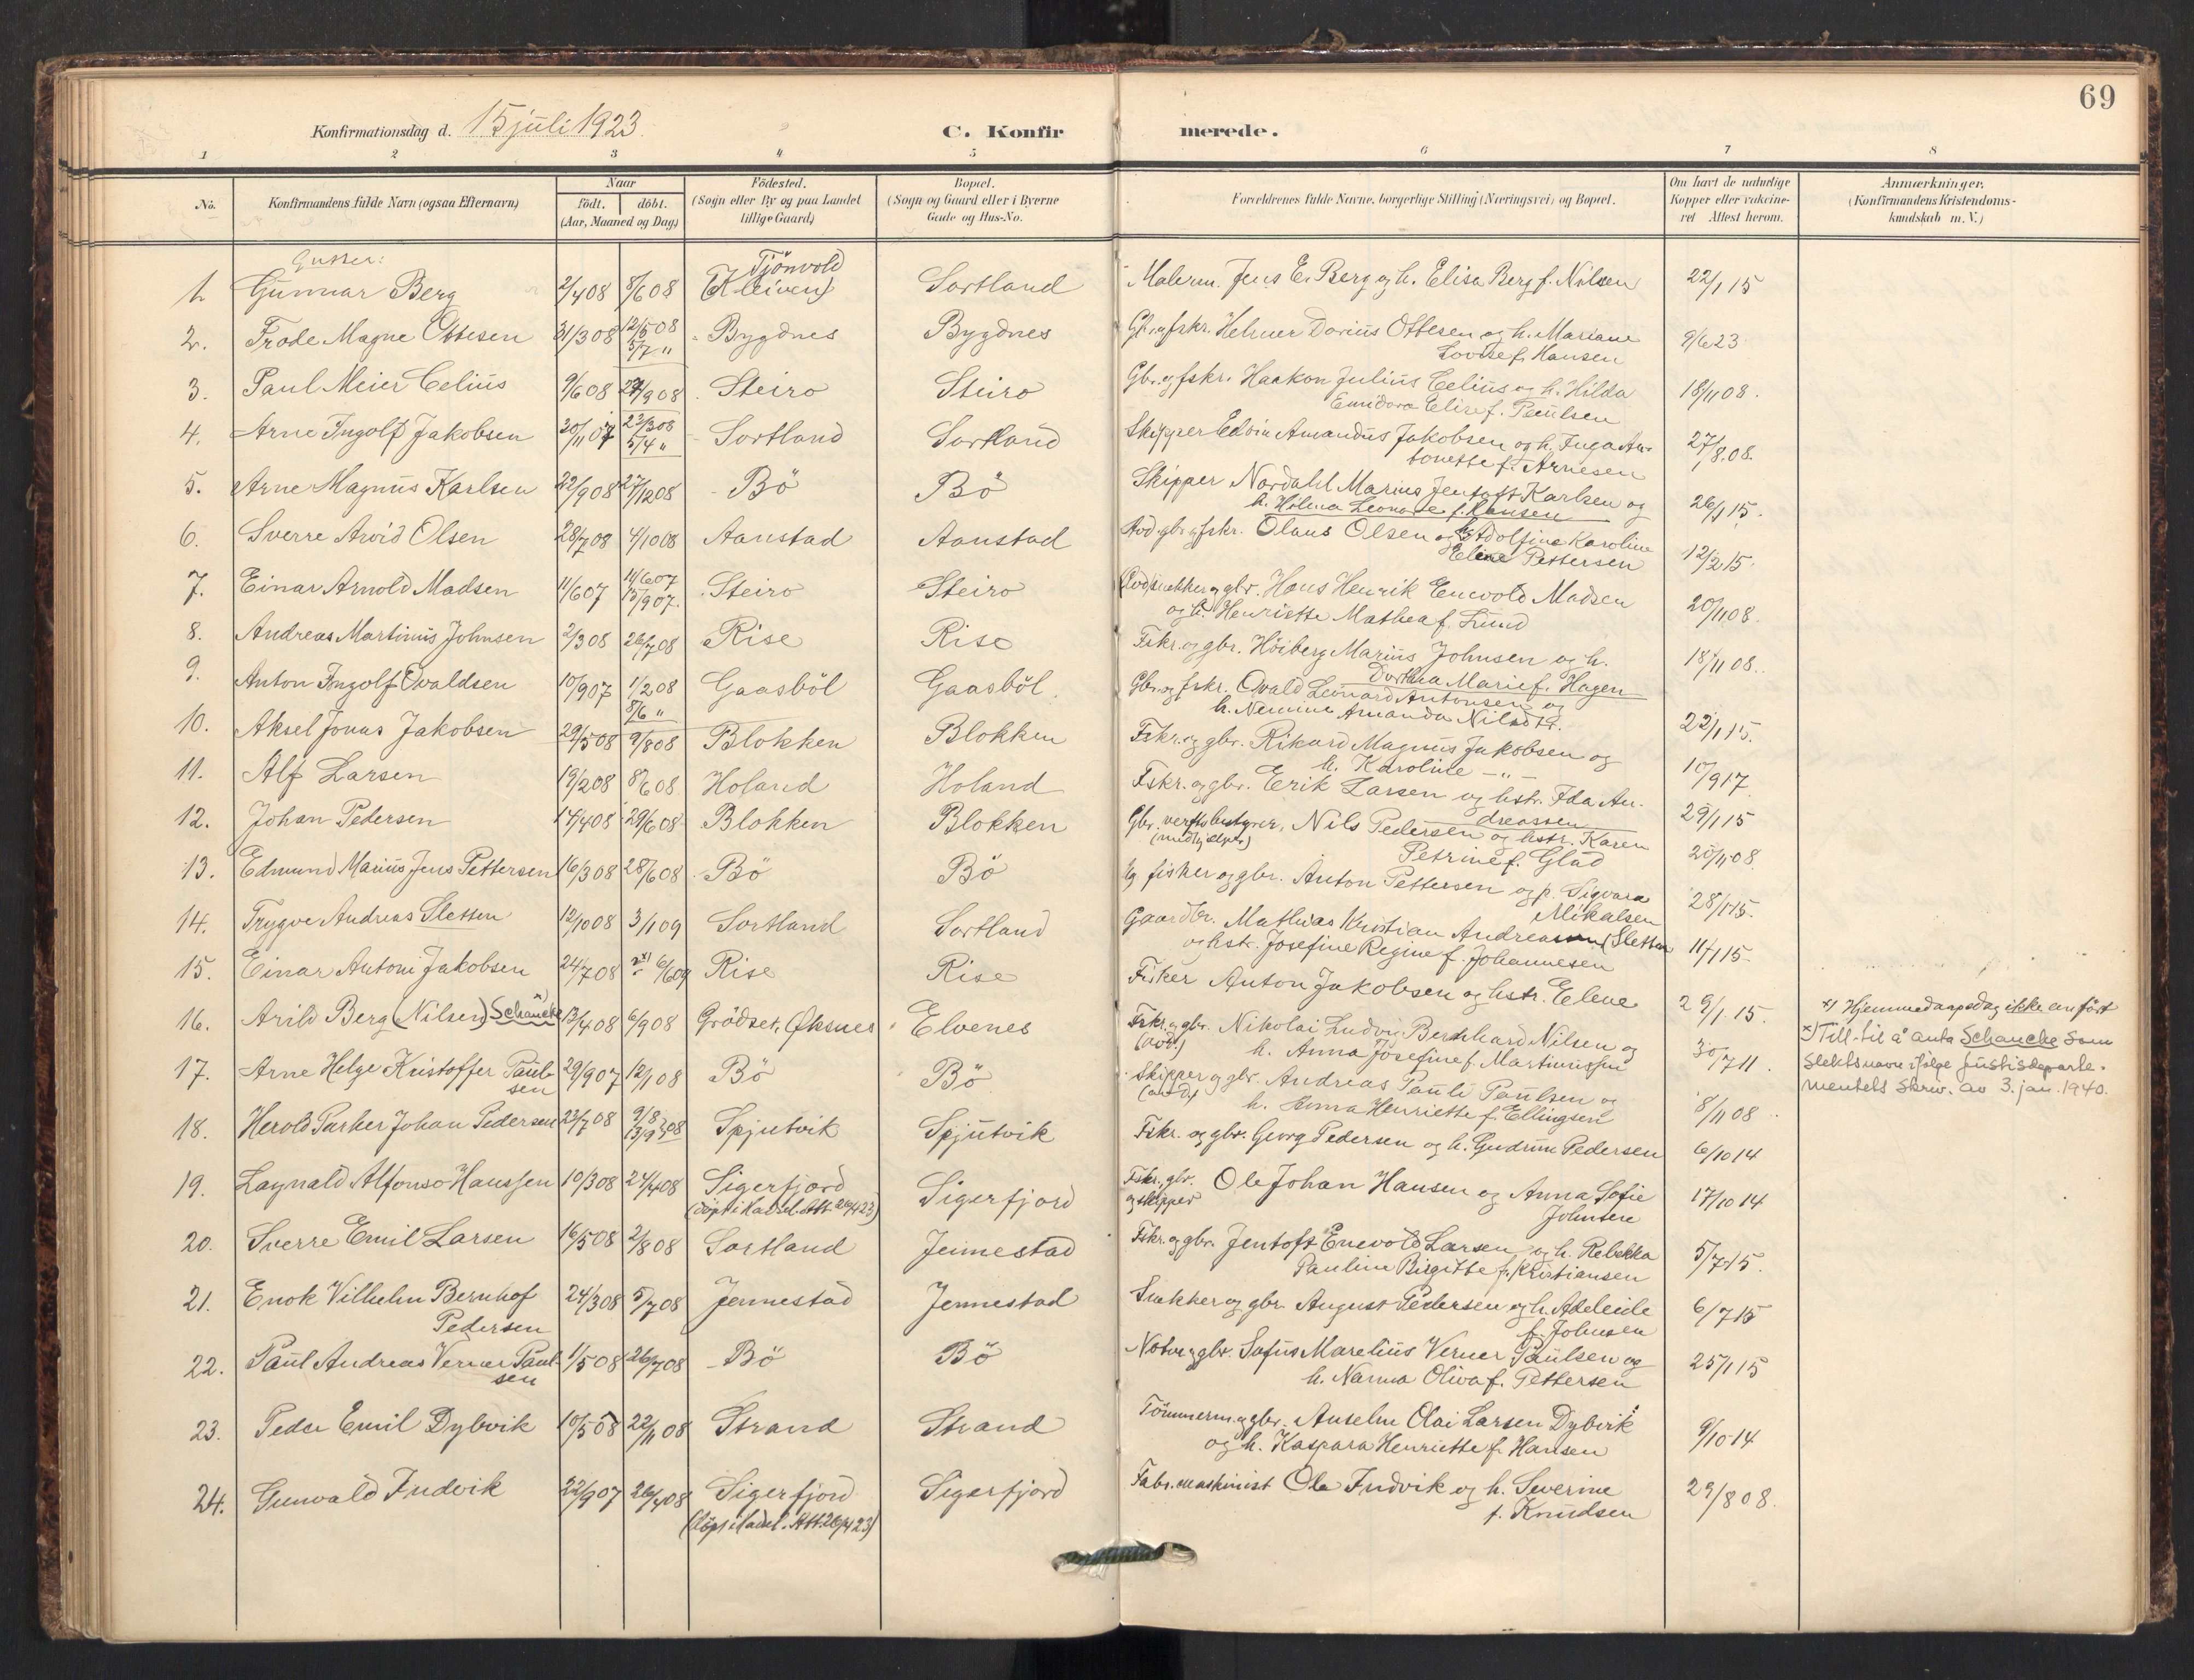 69
Konfirmationsdag d. 15 juli 1923 C. Konfirmerede.
1 2 3 4 5 6 7 8
No. Konfirmandens fulde Navn (ogsaa Efternavn) Naar födt. döbt. (Aar, Maaned og Dag) Födested. (Sogn eller By og paa Landet tillige Gaard) Bopæl. (Sogn og Gaard eller i Byerne Gade og Hus-No. Forældrenes fulde Navne, borgerlige Stilling (Næringsvei) og Bopæl. Om havt de naturlige Kopper eller vakcineret Attest herom. Anmærkninger. (Konfirmandens Kristendomskundskab m. V.)
Gutter:
1. Gunnar Berg 2/4 08 8/6 08 Tjönvold (Kleiven) Sortland Malerm. Jens E. Berg og h. Elisa Berg f. Nilsen 22/1 15
2. Frode Magne Ottesen 31/3 08 12/5 08 5/7 " Bygdnes Bygdnes Gbr. og fskr. Helmer Darius Ottesen og h. Mariane 9/6 23
Lovise f. Hansen
3. Paul Meier Celius 9/6 08 27/9 08 Steiro Steiro Gbr. og fskr. Haakon Julius Celius og h. Hilda 18/11 08.
Emidora Elise f. Paulsen
4. Arne Ingolf Jakobsen 20/11 07 22/3 08 5/4 " Sortland Sortland Skipper Edvin Amandus Jakobsen og h. Inga An- 27/8 08.
tonette f. Arnesen
5. Arne Magnus Karlsen 22/9 08 27/12 08 Bö Bö Skipper Nordahl Marius Jentoft Karlsen og 26/1 15.
h. Helma Leonore f. Hansen
6. Sverre Arvid Olsen 28/7 08 4/10 08 Aanstad Aanstad Avd. gbr. og fskr. Olaus Olsen og h. Adolfine Karoline 12/2 15.
Eline Pettersen
7. Einar Arnold Madsen 11/6 07 14/6 07 15/9 07. Steiro Steiro gbr. Hans Henrik Enevold Madsen 20/11 08.
og h. Henriette Mathea f. Lund
8. Andreas Martinus Johnsen 2/3 08 26/7 08 Rise Rise Fskr. og gbr. Höiberg Marius Johnsen og h. 18/11 08.
Dorthea Marie f. Hagen
9. Anton Ingolf Ovaldsen 10/9 07 1/2 08 8/6 " Gaasböl Gaasböl. Gbr. og fskr. Ovald Leonard Antonsen og 22/1 15.
h. Nemine Amanda
10. Aksel Jonas Jakobsen 29/5 08 9/8 08 Blokken Blokken Fskr. og gbr. Rikard Magnus Jakobsen og 10/9 17
h. Karoline — " —
11. Alf Larsen 19/2 08 8/6 08 Holand Holand Fskr. og gbr. Erik Larsen og hstr. Ida An- 29/1 15
dreassen
12. Johan Pedersen 14/4 08 29/6 08 Blokken Blokken Gbr. verftsbestyrer, Nils Pedersen og hstr. Karen 20/11 08.
(medhjelper) Petrine f. Glad
13. Edmund Marius Jens Pettersen 16/3 08 28/6 08 Bö Bö fisker og gbr. Anton Pettersen og p. Sigvara 28/1 15.
Mikalsen
14. Trygve Andreas Sletten 12/10 08 3/1 09 Sortland Sortland Gaardbr. Mathias Kristian Andreassen (Sletten 11/1 15
og hstr. Josefine Regine f. Johannesen
15. Einar Antoni Jakobsen 24/7 08 x) 6/6 09 Rise Rise Fisker Anton Jakobsen og hstr. Elene 29/1 15. x) Hjemmedaapsdag ikke anført
16. Arild Berg (Nilsen) Schancke x) 13/4 08 6/9 08 Grödset, Öksnes Elvenes Fskr. og gbr. Nikolai Ludvig Bernhard Nilsen og 30/7 11.
h. Anna Josefine f. Martinussen
x) Till. til å anta Schancke som
slektsnavn ifölge Justisdeparte-
mentets skriv. av 3. jan. 1940.
17. Arne Helge Kristoffer Paul- 29/9 07 12/1 08 Bö Bö Skipper og gbr. Andreas Pauli Paulsen og 8/11 08
sen h. Anna Henriette f. Ellingsen
18. Herold Parker Johan Pedersen 22/7 08 9/8 13/9 08 Spjutvik Spjutvik Fskr. og gbr. Georg Pedersen og h. Gudrun Pedersen 6/10 14
19. Laynald Alfonso Hanssen 10/3 08 24/4 08 Sigerfjord Sigerfjord Fskr., gbr. og skipper Ole Johan Hansen og Anna Sofie 17/10 14
(döpt i Hadsel. Att. 26/4 23) Johnsen
20. Sverre Emil Larsen 16/5 08 2/8 08 Sortland Jennestad Fskr. og gbr. Jentoft Enevold Larsen og h. Rebekka 5/7 15.
Pauline Birgitte f. Kristiansen
21. Enok Vilhelm Bernhof 24/3 08 5/7 08 Jennestad Jennestad Snekker og gbr. August Pedersen og h. Adeleide 6/7 15
Pedersen f. Johnsen
22. Paul Andreas Verner Paul- 1/5 08 26/7 08 Bö Bö gbr. Sofus Marelius Verner Paulsen og 25/1 15
sen h. Nanna Oliva f. Pettersen
23. Peder Emil Dybvik 10/5 08 22/11 08 Strand Strand Tömmerm. og gbr. Anselm Olai Larsen Dybvik 9/10 14
og h. Kaspara Henriette f. Hansen
24. Gunvald Indvik 22/9 07 26/4 08 Sigerfjord Sigerfjord Fabr. maskinist Ole Indvik og h. Severine 29/8 08.
(döpt i Hadsel. Att. 26/4 23) f. Knudsen